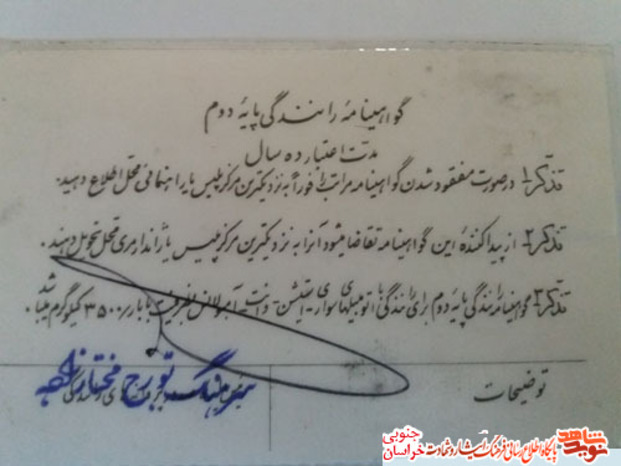 گواهینامهٔ رانندگی پایه دوم
مدت اعتبار ده سال
تذکر۱- درصورت مفقود شدن گواهینامه مراتب را فوراً به نزدیکترین مرکز پلیس یا راهنمائی محل اطلاع دهید.
تذکر۲- از پیدا کنندهٔ این گواهینامه تقاضا میشود آنرا به نزدیکترین مرکز پلیس یا ژاندارمری محل تحویل دهند.
تذکر۳- گواهینامه رانندگی پایه دوم برای رانندگی با اتومبیلهای سواری - استیشن - وانت - آمبولانس بظرفیت با بار ۳۵۰۰ کیلوگرم میباشد.
توضیحات
سرهنگ تورج
شاهد
نوید
پایگاه اطلاع رسانی فرهنگ ایثار و شهادت
خراسان جنوبی